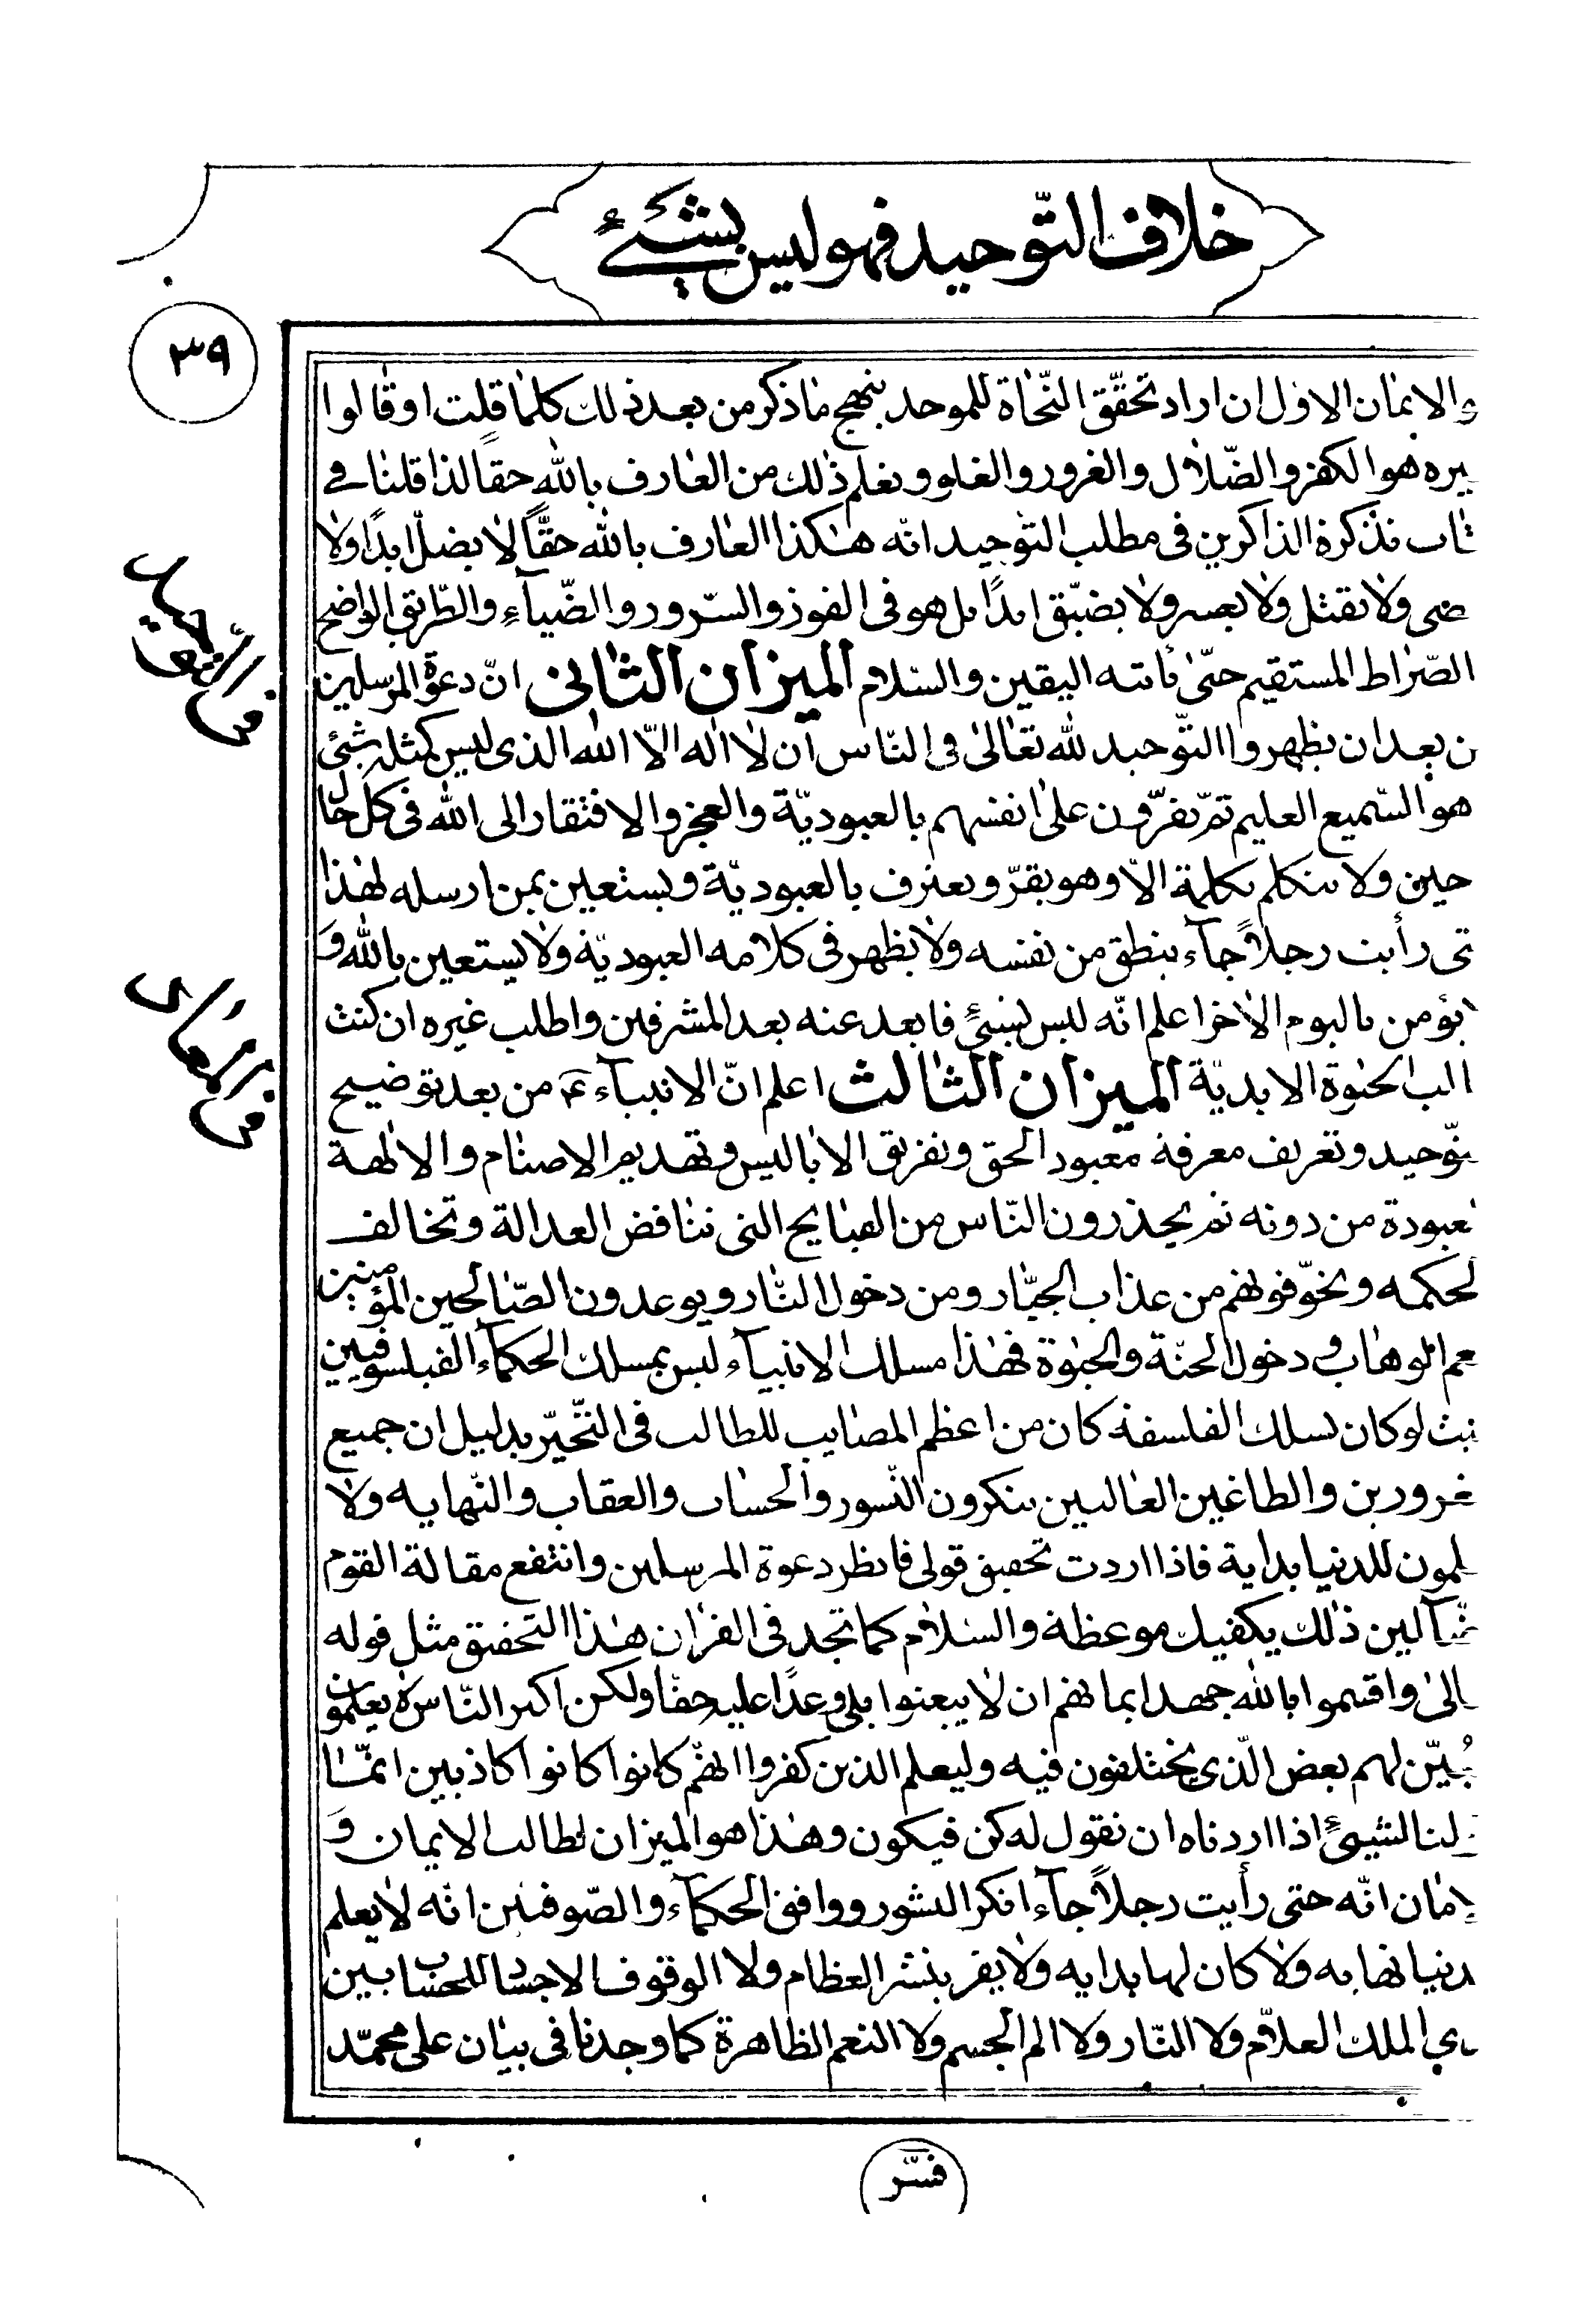 خلاف التّوحيد فهو ليس بشيئ
٣٩
والايمان الاول ان اراد تحقّق النّجاة للموحد بنهج ماذكر من بعد ذلك كلما قلت او قالوا
يره هو الكفر والضّلال والغرور والغلو ويعلم ذلك من العارف بالله حقا لذا قلنا في
تاب تذكرة الذاكرين فى مطلب التوحيد انّه هكذا العارف بالله حقًّا لا يضلّ ابدًا ولا
ولا يقتل ولا ولا يضيّق ابدًا بل هو فى الفوز والسّرور والضّيآء والطّريق الواضح
الصّراط المستقيم حتّى يأتيه اليقين والسّلام الميزان الثانى انّ دعوة المرسلين
ن بعد ان يظهروا التّوحيد لله تعالى فى النّاس ان لا اله الّا الله الذى ليس كمثله شيئ
هو السّميع العليم ثمّ يقرّون على انفسهم بالعبوديّة والعجز والافتقار الى الله فى كل حال
حين ولا يتكلم بكلمة الّا وهو يقرّ ويعترف بالعبوديّة ويستعين بمن ارسله لهذا
تى رأيت رجلاً جآء ينطق من نفسه ولا يظهر فى كلامه العبوديّة ولا يستعين بالله و
يؤمن باليوم الاخر اعلم انّه ليس بشيئ فابعد عنه بعد المشرقين واطلب غيره ان كنت
الب الحيوة الابديّة الميزان الثالث اعلم انّ الانبيآء ع من بعد توضيح
توّحيد وتعريف معرفة معبود الحق وتفريق الاباليس وتهديم الاصنام والالهة
عبودة من دونه ثم يحذرون النّاس من القبايح التى تناقض العدالة وتخالف
لحكمه ويخوّفونهم من عذاب الجبّار ومن دخول النّار ويوعدون الصّالحين المؤمنين
عم الوهاب فى دخول الجنّة والحيوة فهذا مسلك الانبيآء ليس بمسلك الحكمآء الفيلسوفيين
يث لو كان يسلك الفلسفة كان من اعظم المصايب للطالب فى التّحيّر بدليل ان جميع
غرورين والطاغين الغاليين ينكرون النّشور والحساب والعقاب والنّهايه ولا
لمون للدنيا بداية فاذا اردت تحقيق قولى فانظر دعوة المرسلين وانتفع مقالة القوم
ضّآلين ذلك يكفيك موعظة والسّلام كما تجد فى القران هذا التحقيق مثل قوله
الى واقسموا بالله جهد ايمانهم ان لا يبعثوا بلى وعدًا عليه حقّا ولكن اكثر النّاس لا يعلمون
يُبيّن لهم بعض الّذى يختلفون فيه وليعلم الذين كفروا انهّم كانوا كانوا كاذبين انّما
لنا لشيئ اذا اردناه ان نقول له كن فيكون وهذا هو الميزان لطالب الايمان و
لامان انّه حتى رأيت رجلاً جآء انكر النشور ووافق الحكمآء والصّوفيين انّه لا يعلم
دنيا نهايه ولا كان لها بدايه ولا يقر بنشر العظام ولا الوقوف الاجساد للحساب بين
دي الملك العلاّم ولا النّار ولا الم الجسم ولا النعم الظاهرة كما وجدنا فى بيان على محمّد
فسّر